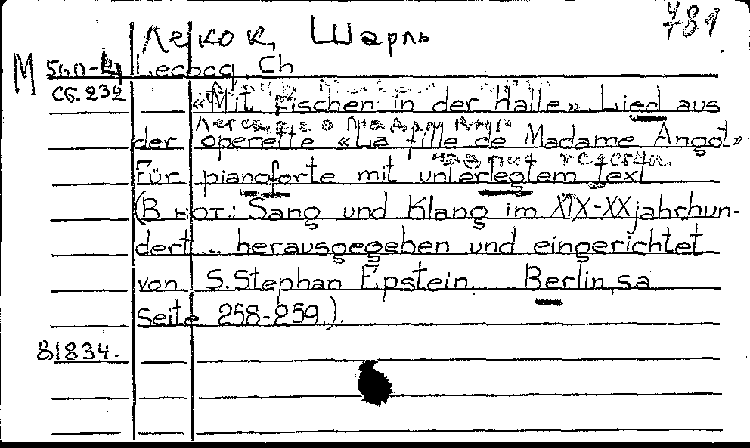 781
Лекок, Шарль
М 560-4 Lecocq, Ch
Сб. 232
«Mit Fischen in der Halle» Lied aus
der operette «La fille de Madame Angot»
Für pianoforte mit unterlegtem Text
(В нот.: Sang und Klang im XIX-XX jahrhun-
dert - herausgegeben und eingerichtet
von S. Stephan Epstein. Berlin, s.a
Seite 258-259.)
81834.